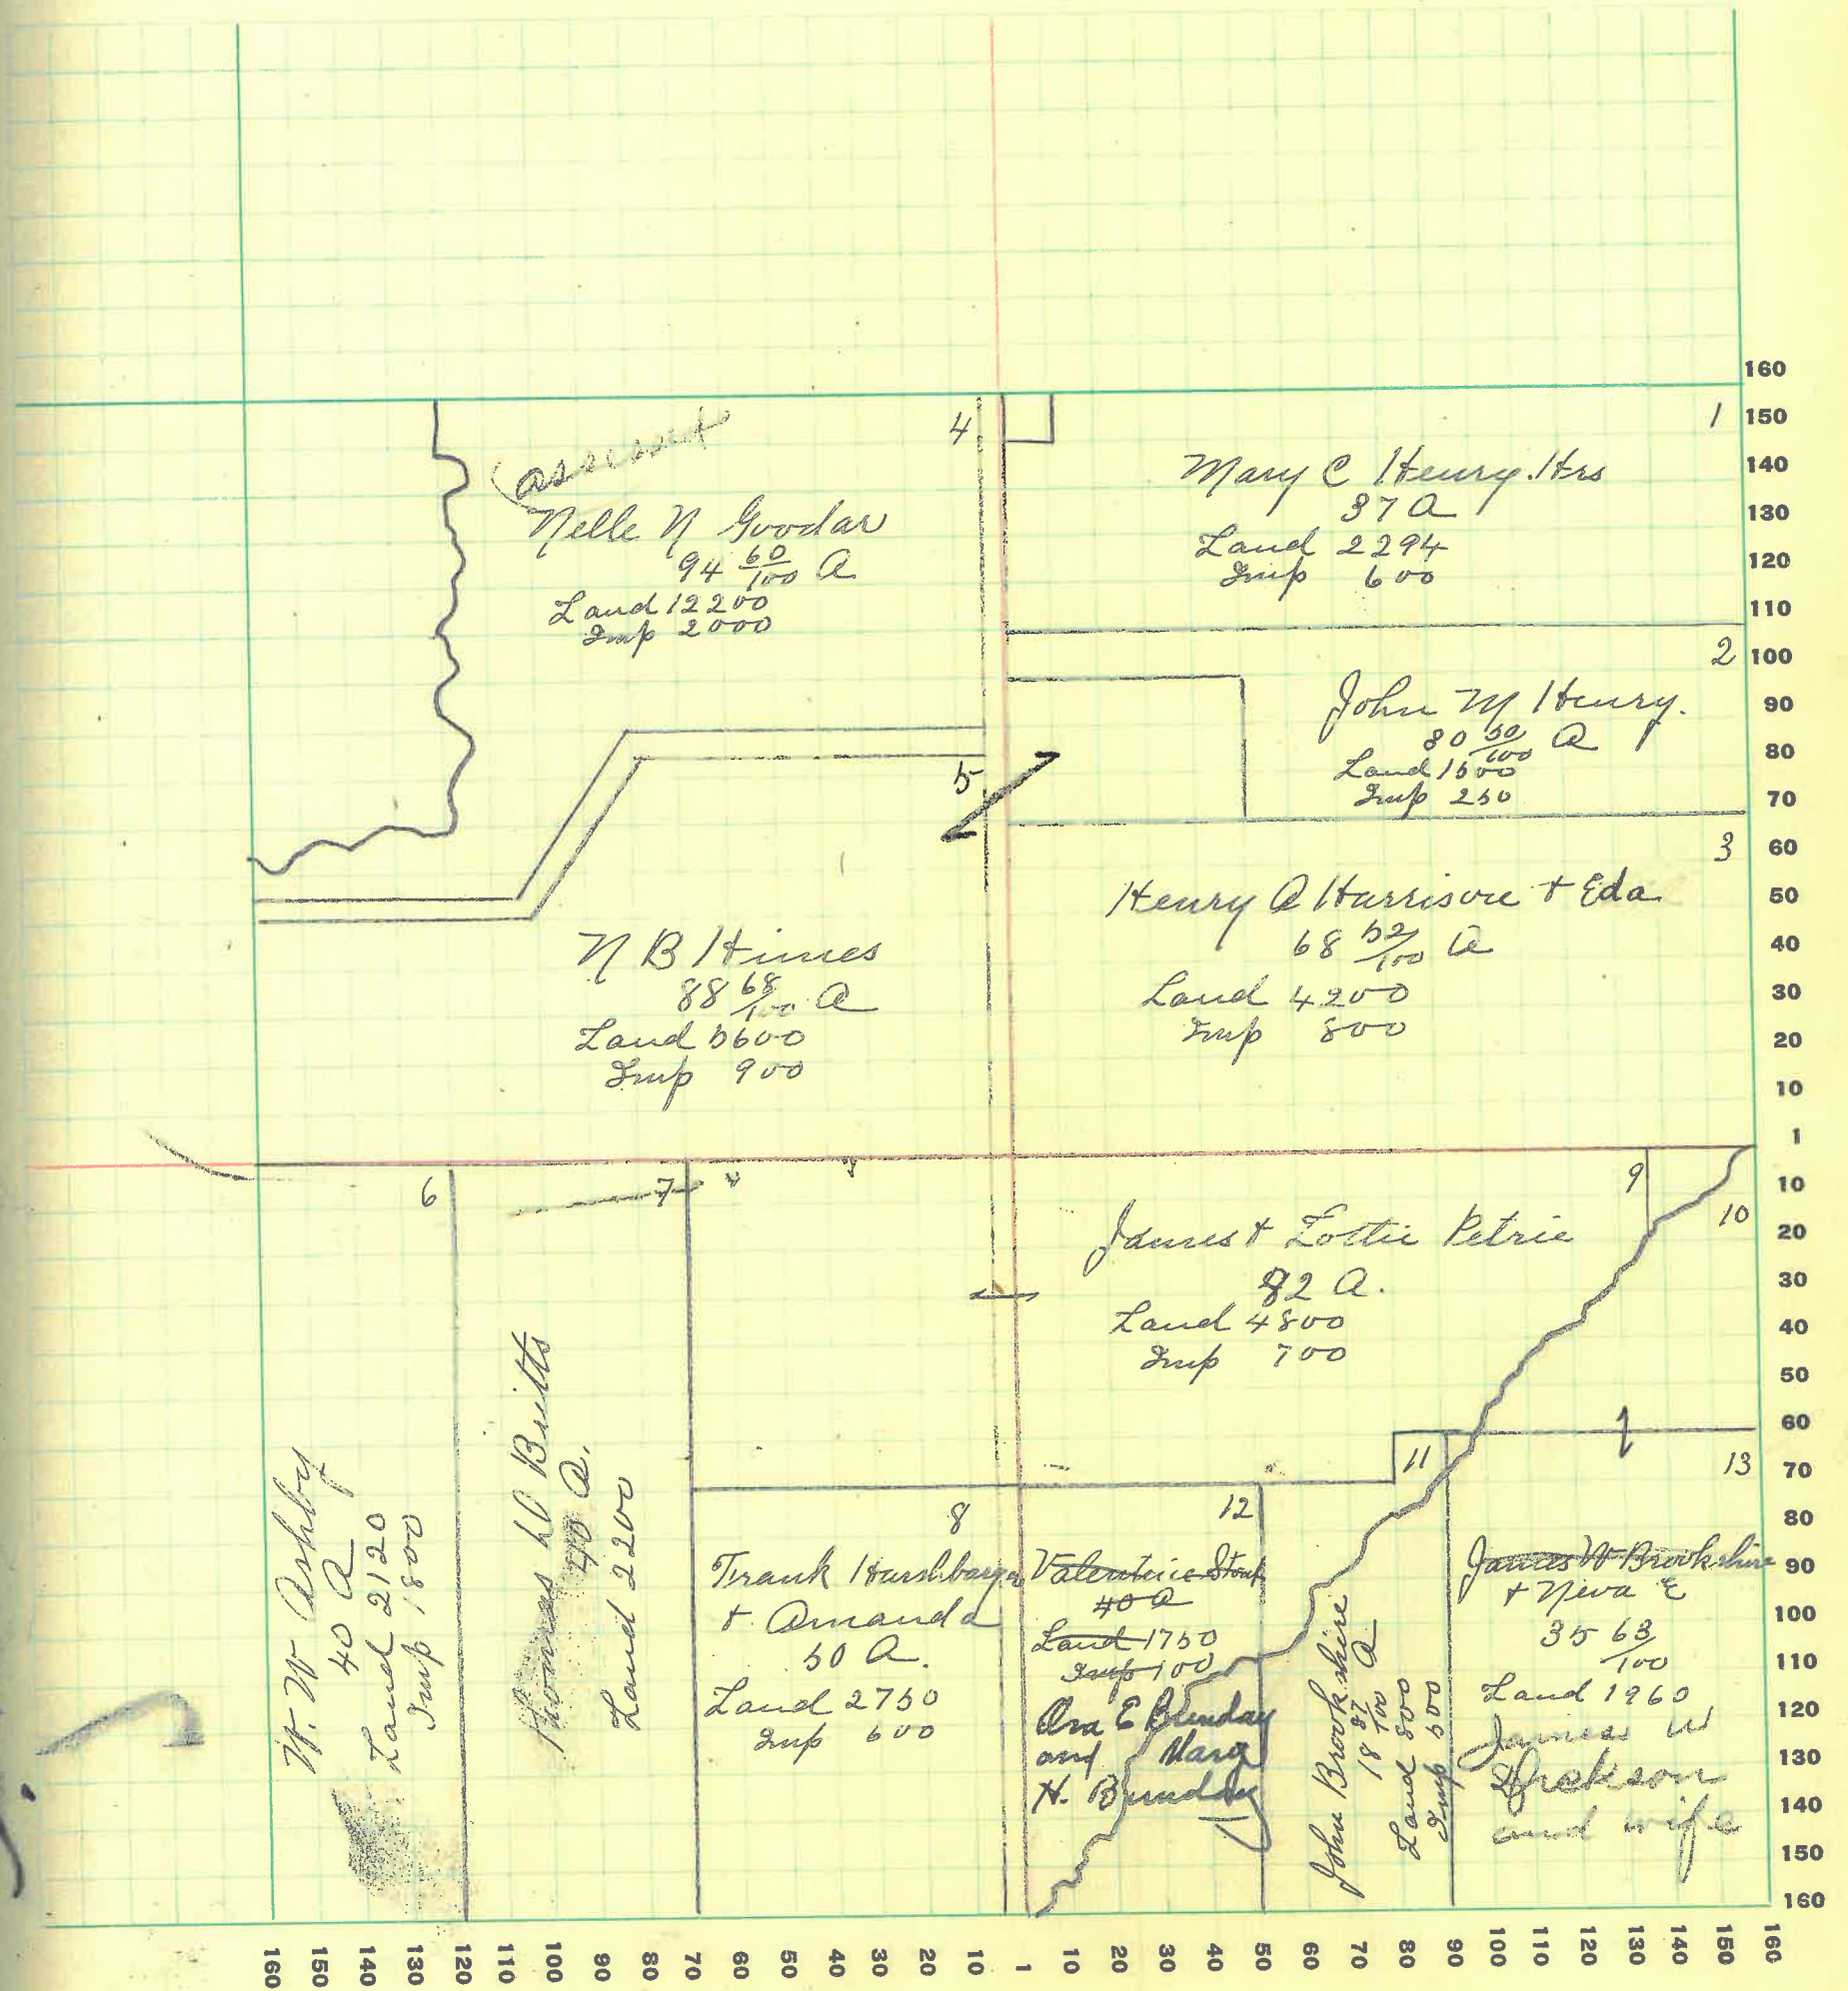 160
150
140
130
120
110
100
90
80
70
60
50
40
30
20
10
1
10
20
30
40
50
60
70
80
90
100
110
120
130
140
150
160
4
Nelle N Goodar
94 60/100 A
Land 12200
Imp 2000
1
Mary C Henry. Hrs
37 A
Land 2294
Imp 600
2
John M Henry.
80 50/100 A
Land 1500
Imp 250
5
N B Himes
88 68/100 A
Land 5600
Imp 900
3
Henry A Harrison + Eda
68 52/100 A
Land 4200
Imp 800
6
W. W Ashby
40 A
Land 2120
Imp 1800
7
Thomas W Britts
40 A.
Land 2200
9
10
James + Lottie Petrie
82 A.
Land 4800
Imp 700
8
Frank Harshbarger
+ Amanda
50 A.
Land 2750
Imp 600
12
Valentine Stout
40 A
Land 1750
Imp 100
Ora E Bunday
and Mary
H. Bunday
11
John Brookshire
18 87/100 A
Land 800
Imp 500
13
James W Brookshire
+ Neva E
35 63/100
Land 1960
James W
and wife
160 150 140 130 120 110 100 90 80 70 60 50 40 30 20 10 1 10 20 30 40 50 60 70 80 90 100 110 120 130 140 150 160